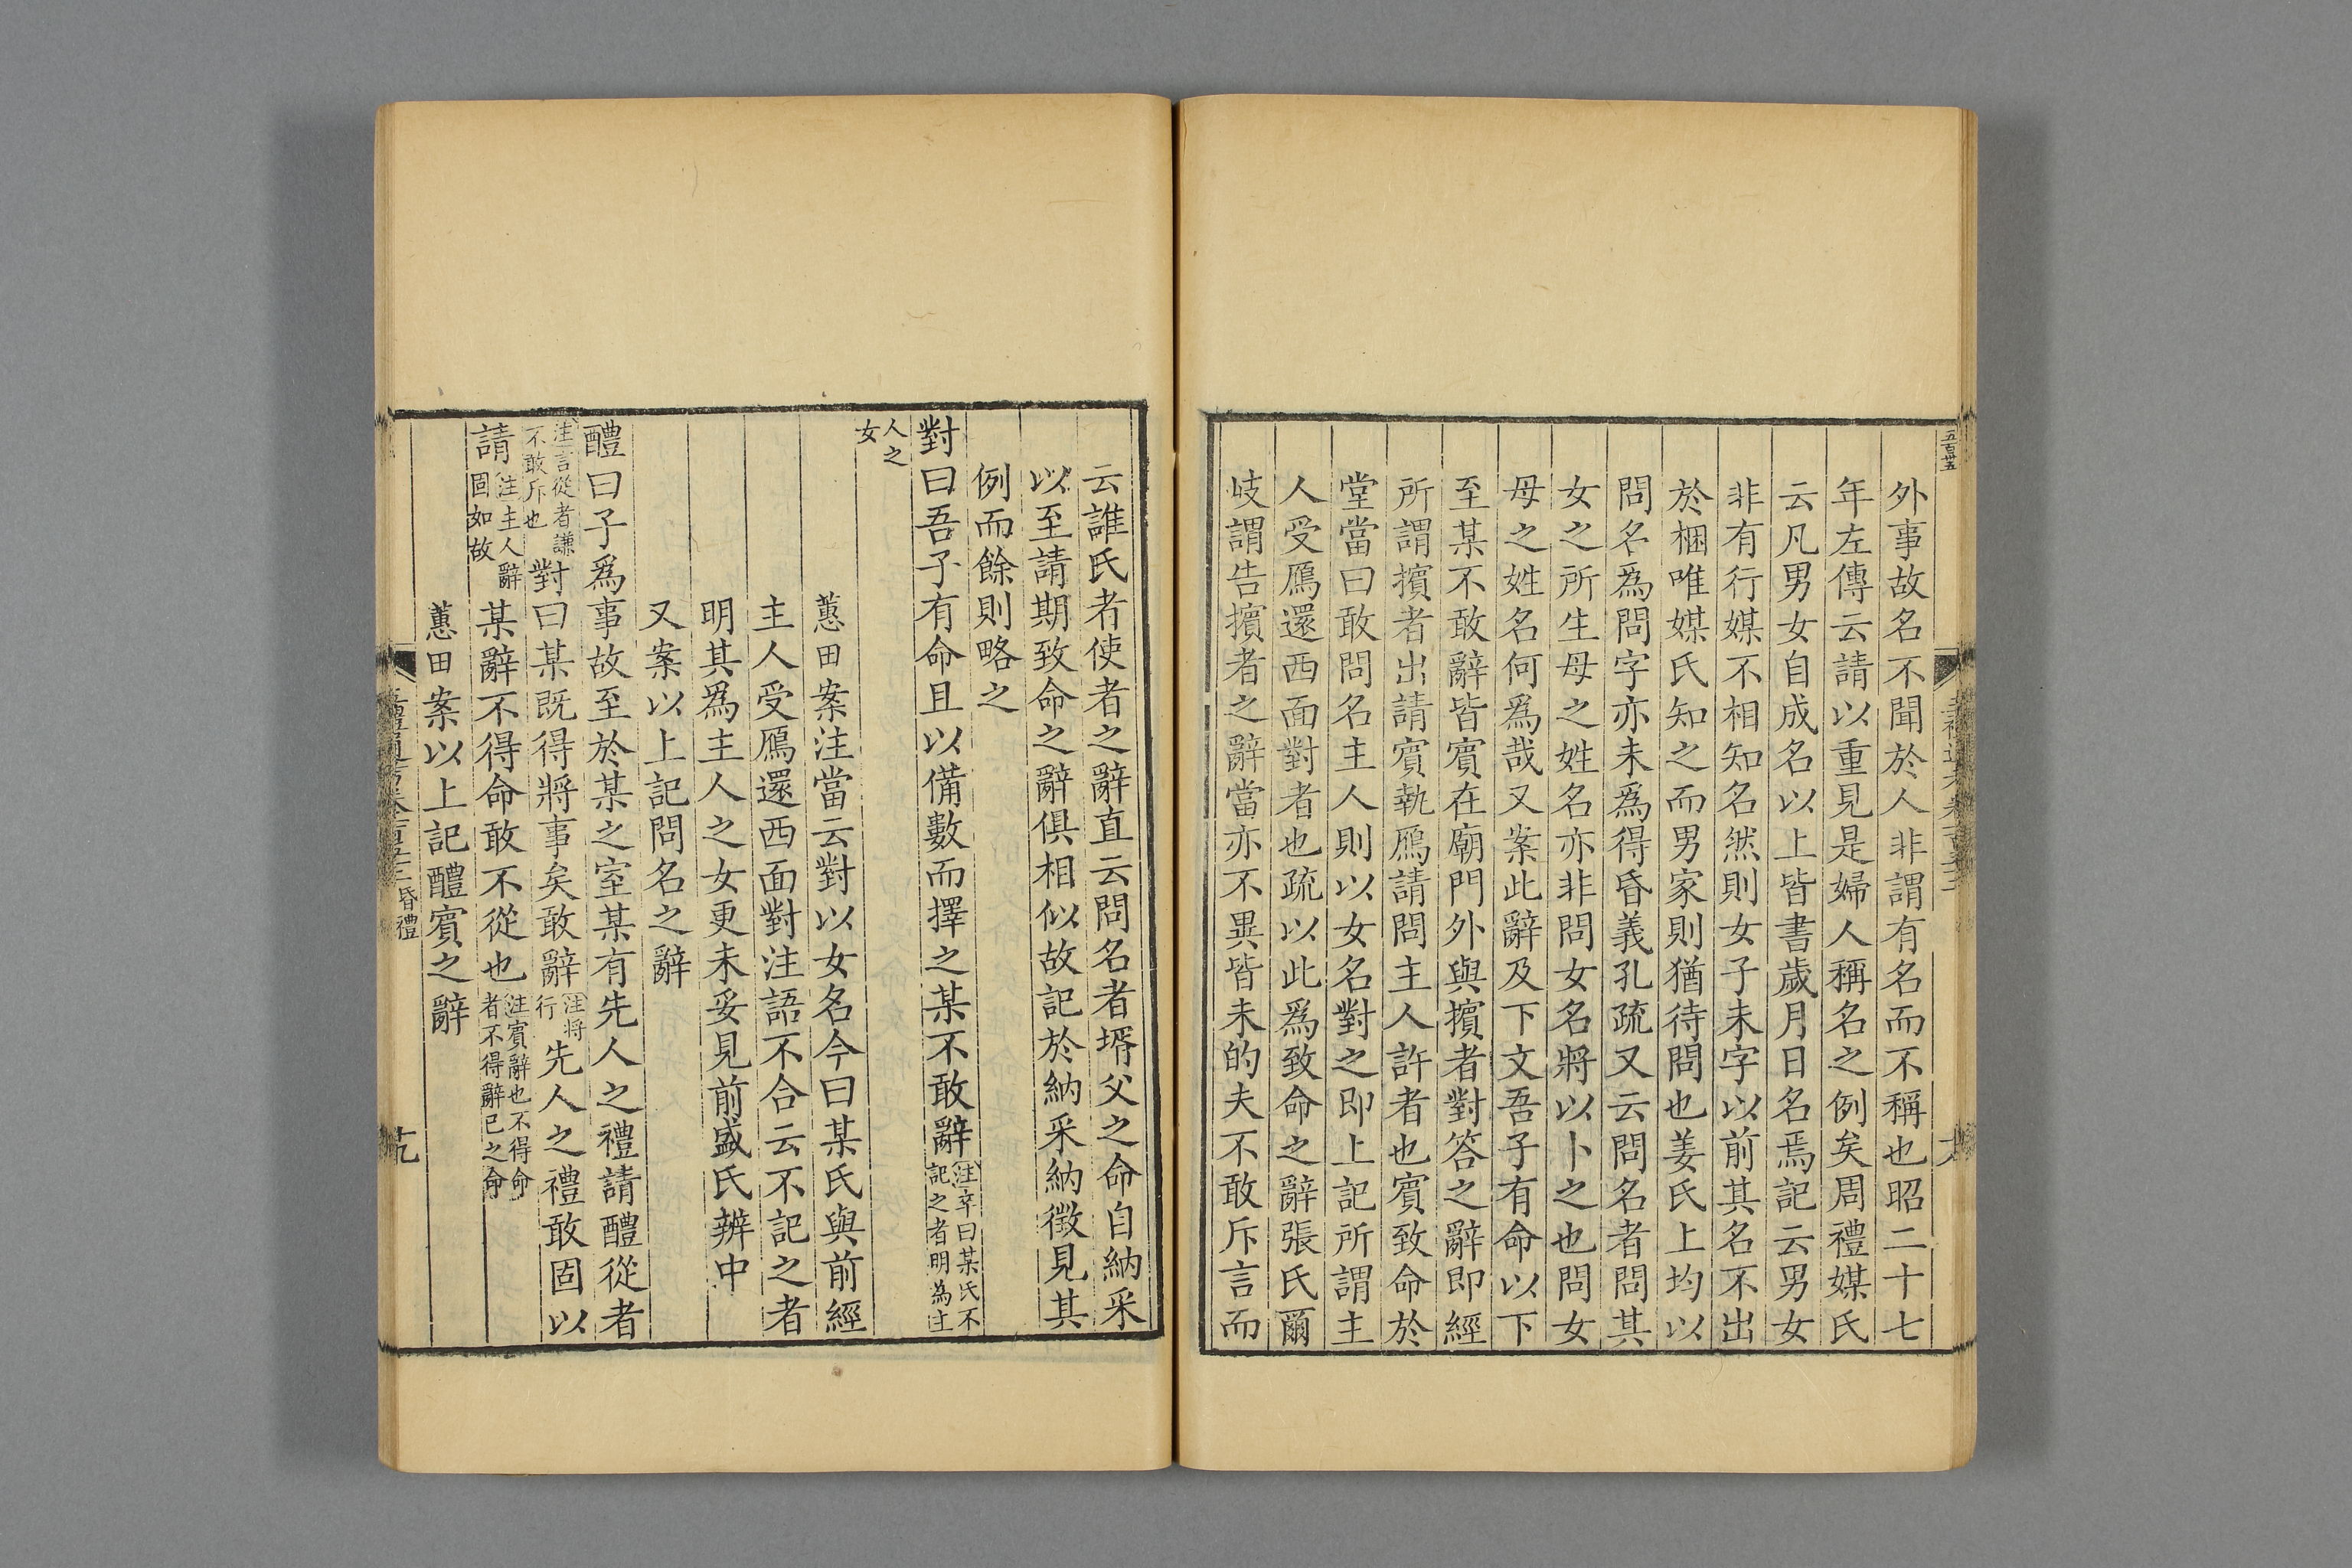 外事故名不聞於人非謂有名而不稱也昭二十七
年左傳云請以重見是婦人稱名之例矣周禮媒氏
云凡男女自成名以上皆書歲月日名焉記云男女
非有行媒不相知名然則女子未字以前其名不出
於梱唯媒氏知之而男家則猶待問也姜氏上均以
問名爲問字亦未爲得昏義孔疏又云問名者問其
女之所生母之姓名亦非問女名將以卜之也問女
母之姓名何爲哉又案此辭及下文吾子有命以下
至某不敢辭皆賓在廟門外與擯者對答之辭即經
所謂擯者出請賓執鴈請問主人許者也賓致命於
堂當曰敢問名主人則以女名對之即上記所謂主
人受鴈還西面對者也疏以此爲致命之辭張氏爾
岐謂告擯者之辭當亦不異皆未的夫不敢斥言而
云誰氏者使者之辭直云問名者壻父之命自納采
以至請期致命之辭俱相似故記於納采納徵見其
例而餘則略之
對曰吾子有命且以備數而擇之某不敢辭注卒曰某氏不
記之者明為主
人之
女
蕙田案注當云對以女名今曰某氏與前經
主人受鴈還西面對注語不合云不記之者
明其爲主人之女更未妥見前盛氏辨中
又案以上記問名之辭
醴曰子爲事故至於某之室某有先人之禮請醴從者
注言從者謙
不敢斥也
對曰某既得將事矣敢辭注將
行
先人之禮敢固以
請注主人辭
固如故
某辭不得命敢不從也注賓辭也不得命
者不得辭已之命
蕙田案以上記醴賓之辭
五禮通考卷一百五十二 昏禮